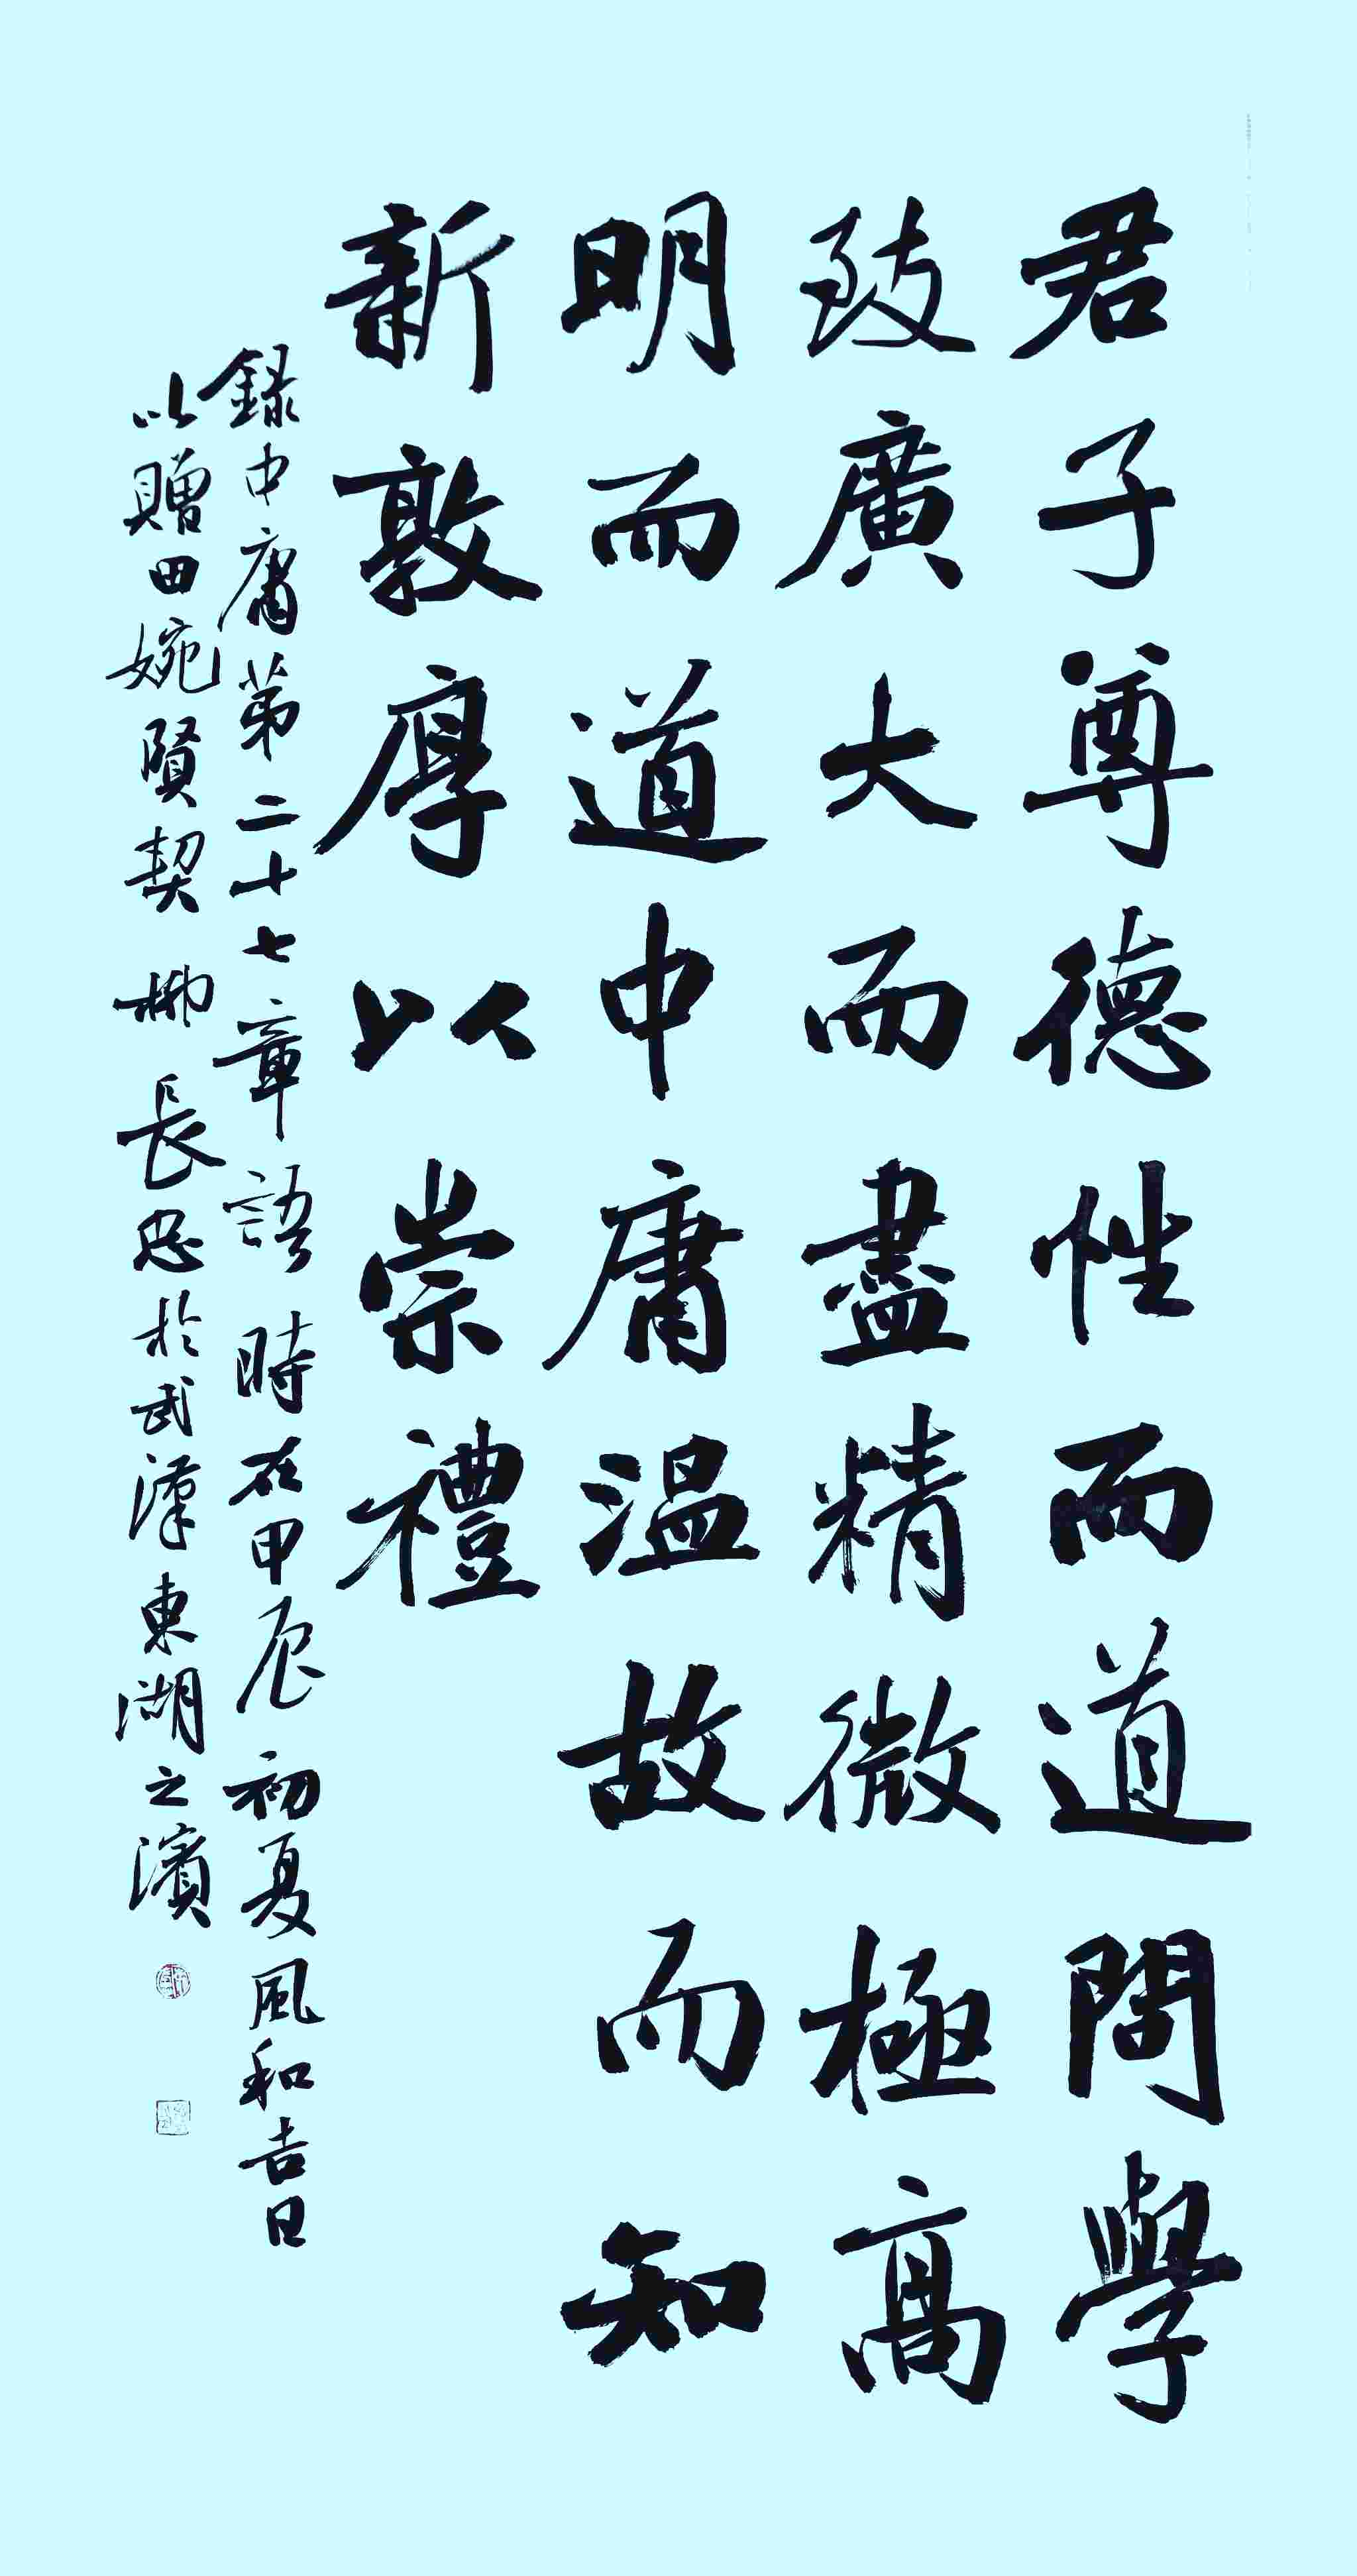 君子尊德性而道問學
致廣大而盡精微極高
明而道中庸温故而知
新敦厚以崇禮
録中庸第二十七章語時在甲辰初夏風和吉日
以贈田婉賢契柳長忠於武漢東湖之濱